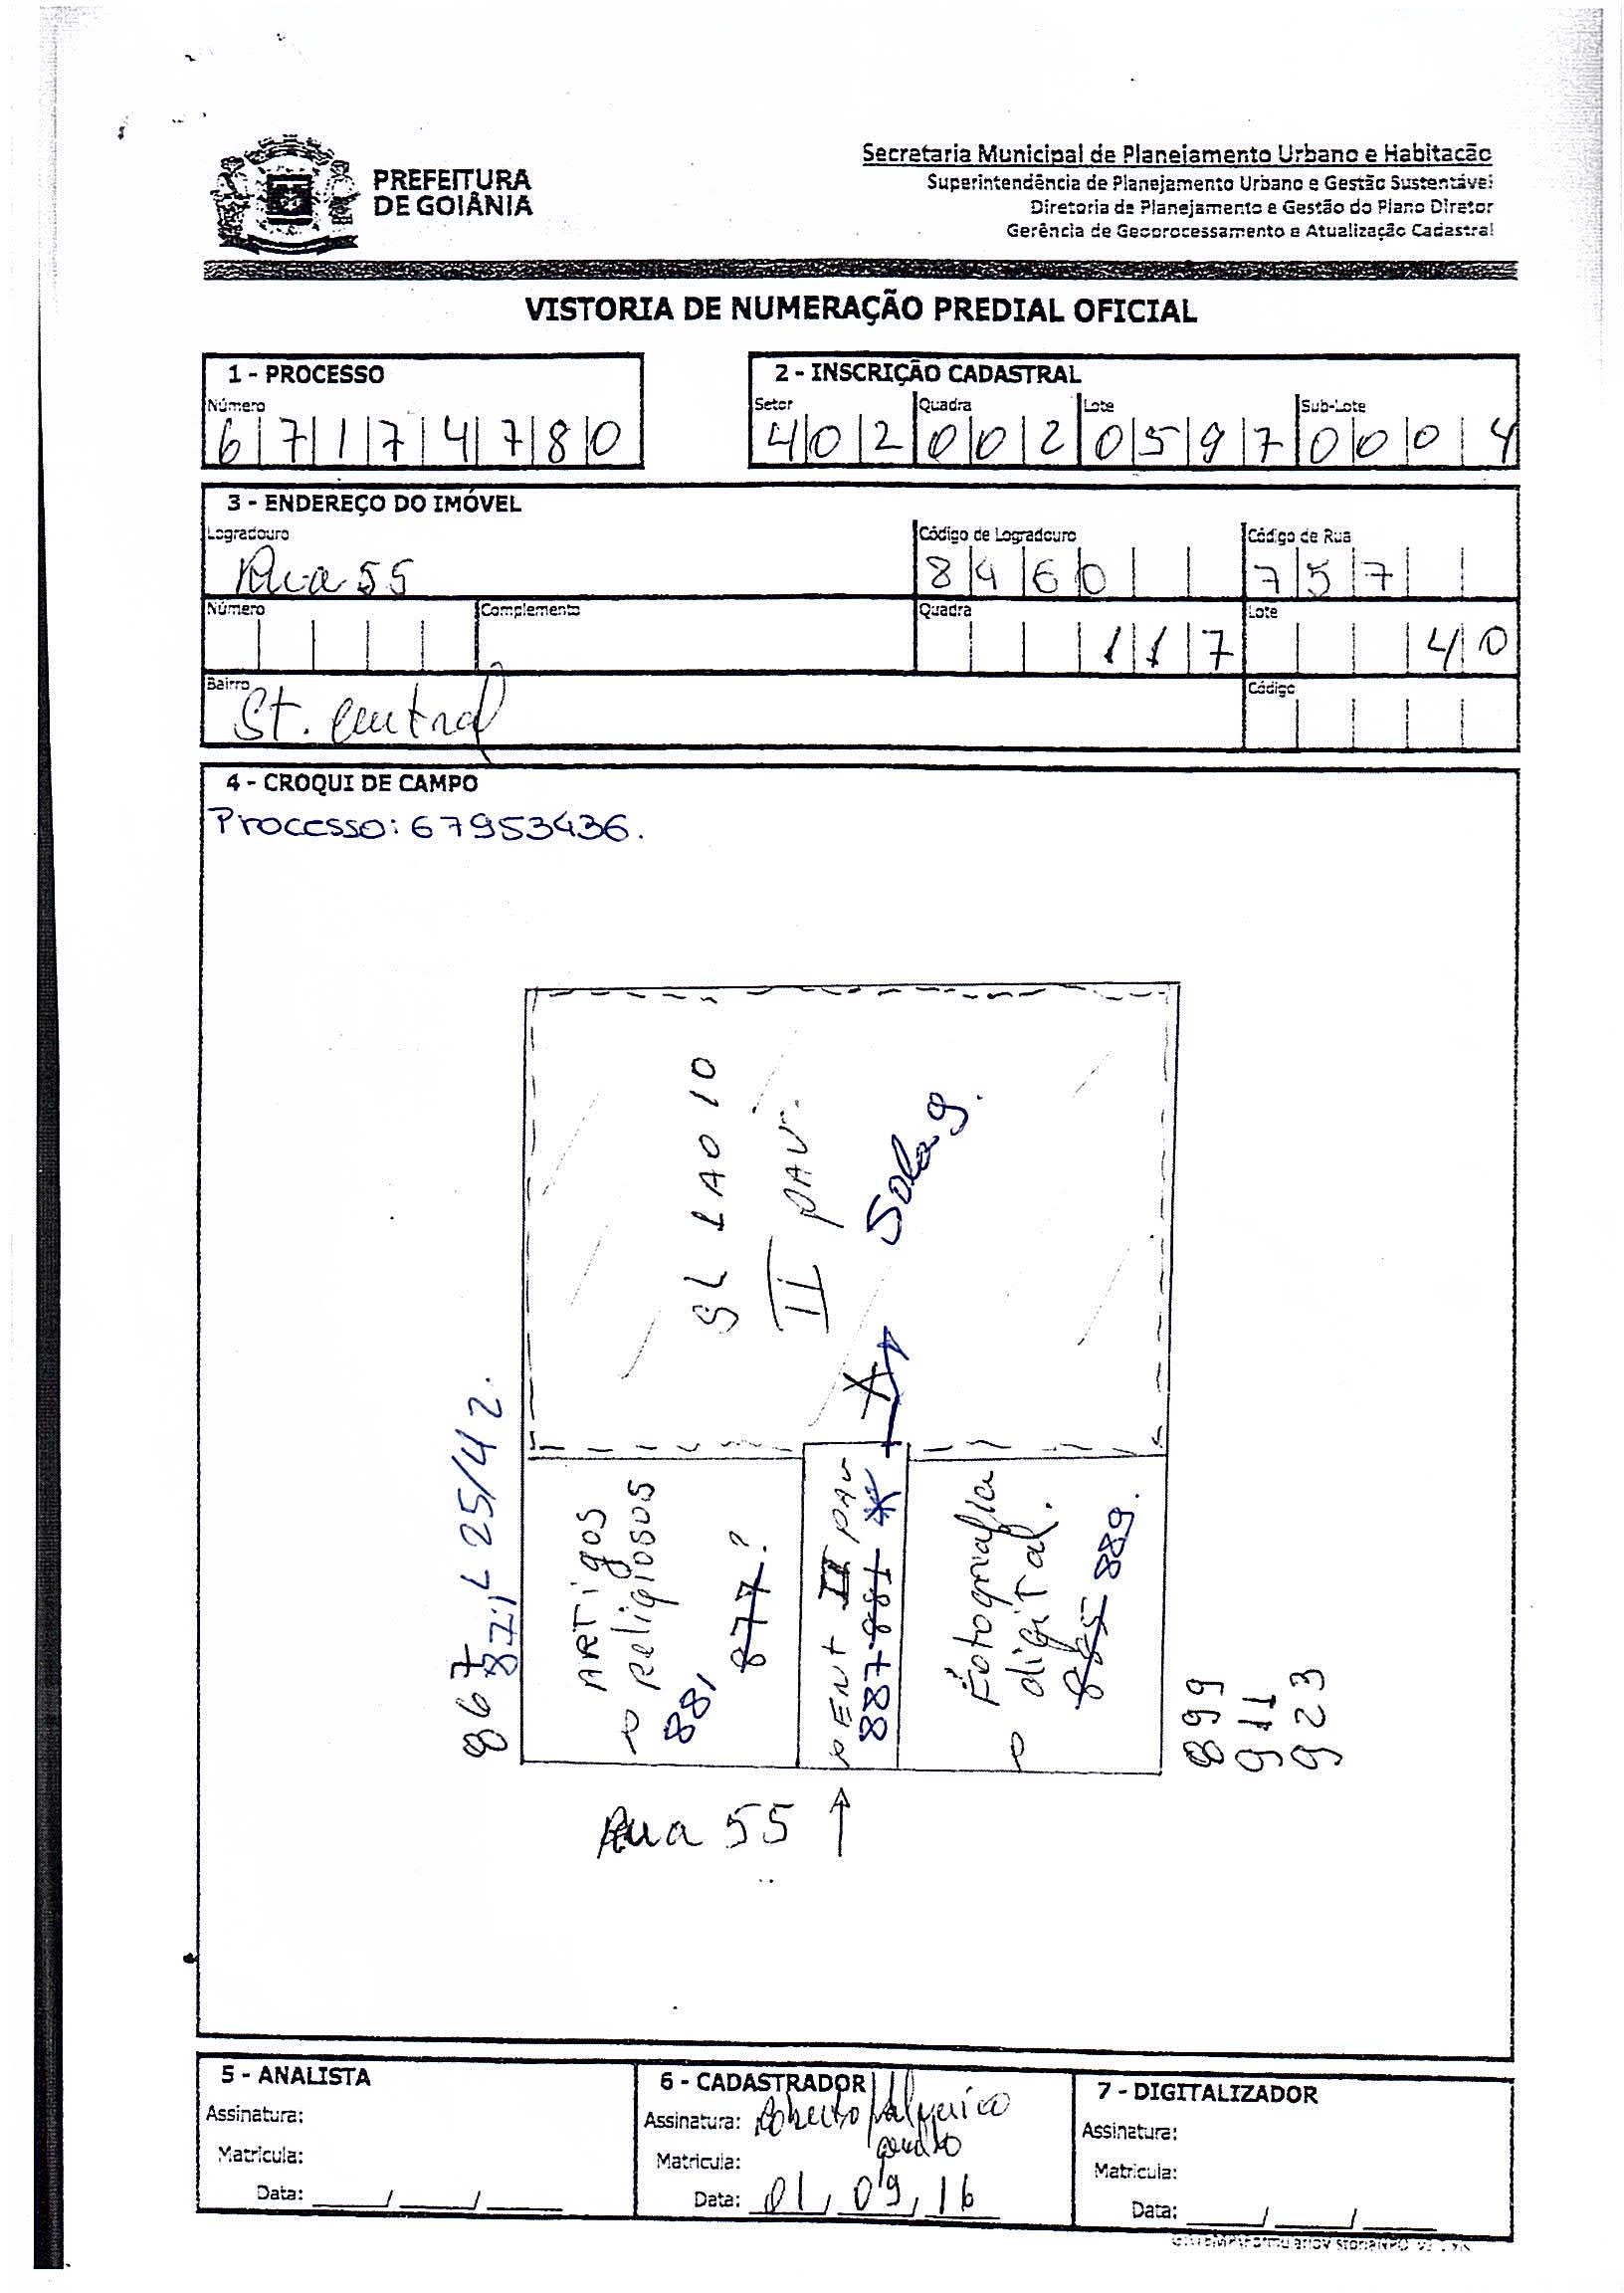 PREFEITURA
DE GOIÂNIA
Secretaria Municipal de Planejamento Urbano e Habitação
Superintendência de Planejamento Urbano e Gestão Sustentável
Diretoria de Planejamento e Gestão do Plano Diretor
Gerência de Geoprocessamento e Atualização Cadastral
VISTORIA DE NUMERAÇÃO PREDIAL OFICIAL
1 - PROCESSO
Número
6 7 1 7 4 7 8 0
2 - INSCRIÇÃO CADASTRAL
Setor Quadra Lote Sub-Lote
4 0 2 0 0 2 0 5 9 7 0 0 0 4
3 - ENDEREÇO DO IMÓVEL
Logradouro Código de Logradouro Código de Rua
Rua 55 8 4 6 0 7 5 7
Número Complemento Quadra Lote
1 1 7 4 0
Bairro Código
St. Central
4 - CROQUI DE CAMPO
Processo: 67953436.
SL 1 AO 10
II PAV.
Sala 9.
867
871 L 25/42.
ARTigos
Religiosos
881 877?
ENT II PAV
887 881
Fotografia
digital.
885 889.
899
911
923
Rua 55
5 - ANALISTA
Assinatura:
Matrícula:
Data: ___/___/___
6 - CADASTRADOR
Assinatura: Roberto
Matrícula:
Data: 01/09/16
7 - DIGITALIZADOR
Assinatura:
Matrícula:
Data: ___/___/___